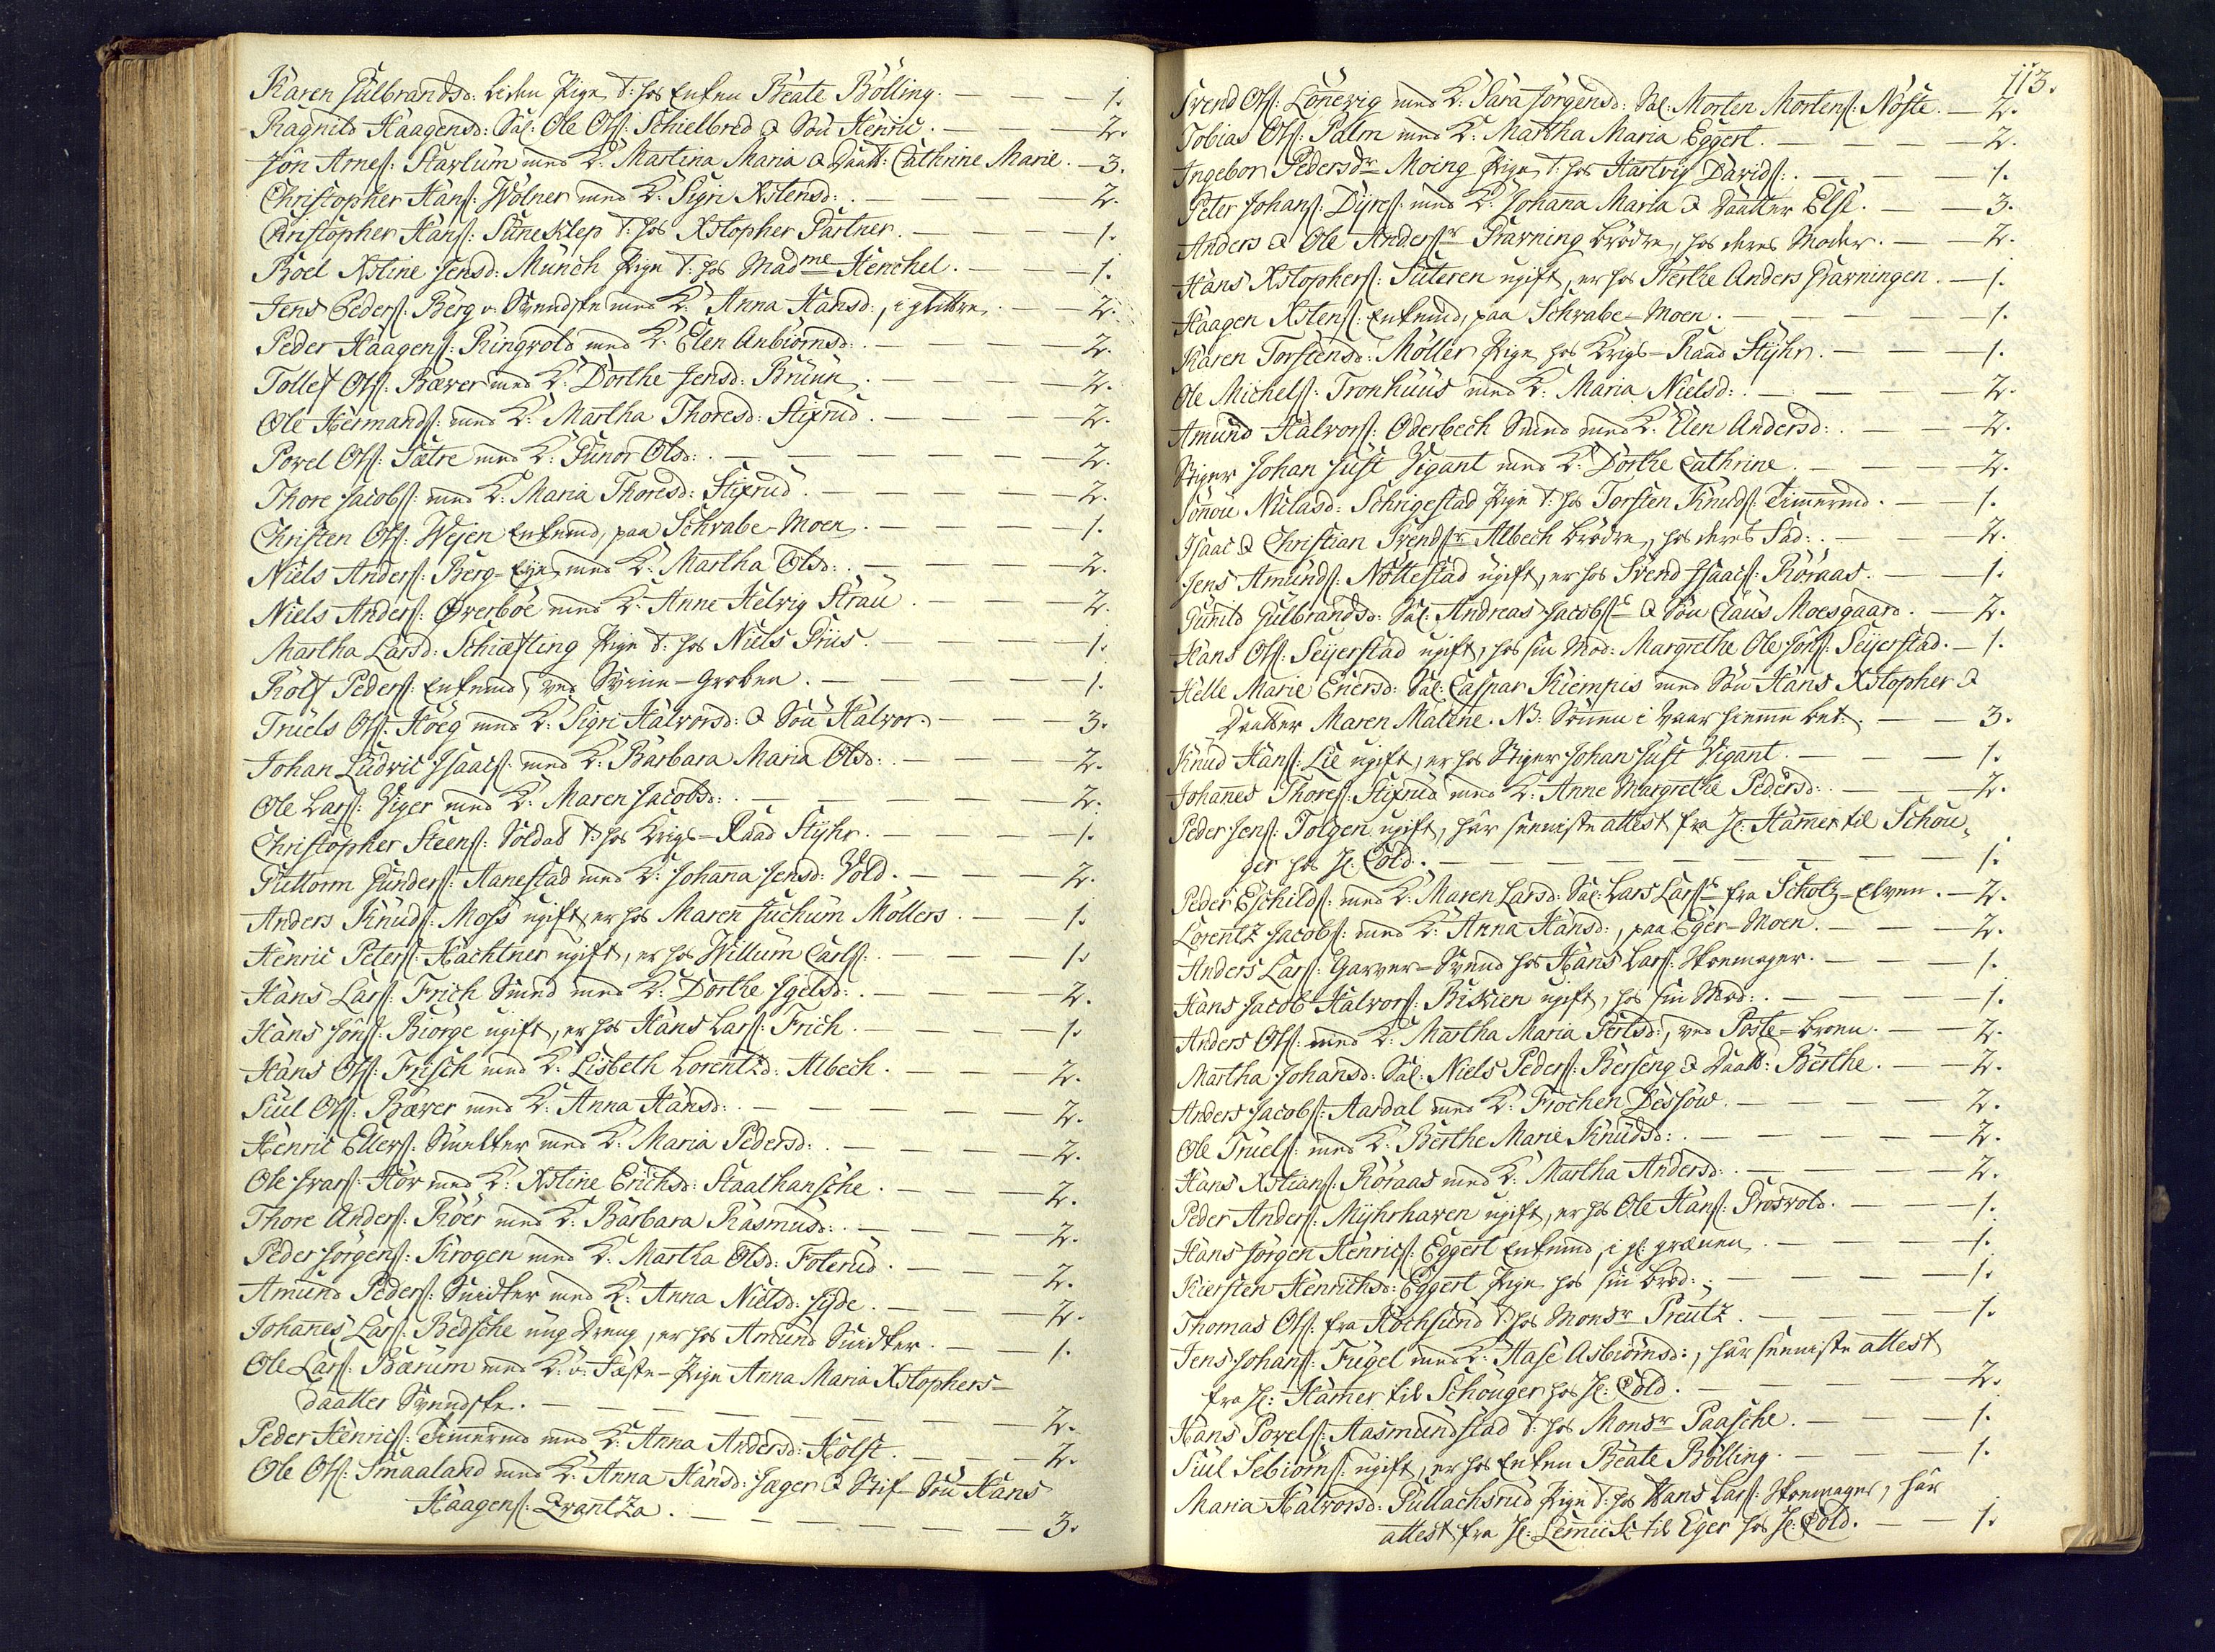 Karen Gulbrandsd: liden Pige t: hos Enken Beate Bölling. — 1.
Ragnild Haagensd: Sal: Ole Ols: Schielbred & Sön Henric. — 2.
Jon Arnes: Starlum med K: Martina Maria & Daatt: Cathrine Marie. — 3.
Christopher Hans: Wölner med K: Sigri Xstensd: — 2.
Christopher Hans: Suneklep t: hos Xstopher Partner. — 1.
Boel Xstine Jensd: Münch Pige t: hos Madme Henchel. — 1.
Jens Peders: Berg v. Svendske med K: Anna Hansd:, i glittre — 2.
Peder Haagens: Ringvold med K: Elen Anbiörnsd: — 2.
Tollef Ols: Bæver med K: Dorthe Jensd: Brunn. — 2.
Ole Hermands: med K: Martha Thoresd: Stixrud. — 2.
Povel Ols: Sætre med K: Gunor Olsd: — 2.
Thore Jacobs: med K: Maria Thoresd: Stixrud. — 2.
Christen Ols: Wejen Enkemd, paa Schrabe-Moen. — 1.
Niels Anders: Berg-Eje med K: Martha Olsd: — 2.
Niels Anders: Øverböe med K: Anne Helvig Strau. — 2.
Martha Larsd: Schiæfling Pige t: hos Niels Priis. — 1.
Rolf Peders: Enkemd, ved Sviin-Groben. — 1.
Truels Ols: Höeg med K: Sigri Halvorsd: & Sön Halvor. — 3.
Johan Ludvic Isaacs: med K: Barbara Maria Olsd: — 2.
Ole Lars: Viger med K: Maren Jacobsd: — 2.
Christopher Steens: Soldat t: hos Krigs-Raad Stÿhr. — 1.
Guttorm Gunders: Hanestad med K: Johana Jensd: Vold. — 2.
Anders Knuds: Moss ugift, er hos Maren Juchum Möllers. — 1.
Henric Peters: Kachtner ugift, er hos Willum Carls: — 1.
Hans Lars: Frich Smed med K: Dorthe Igelsd: — 2.
Hans Jöns: Biörge ugift, er hos Hans Lars: Frich. — 1.
Hans Ols: Frisch med K: Lisbeth Lorentzd: Albech. — 2.
Juul Ols: Bæver med K: Anna Hansd: — 2.
Henric Ellers: Smelter med K: Maria Pedersd: — 2.
Ole Ivars: Hör med K: Xstine Erichsd: Staalhansche. — 2.
Thore Anders: Röer med K: Barbara Rasmusd: — 2.
Peder Jörgens: Krogen med K: Martha Olsd: Foterud. — 2.
Amund Peders: Snidker med K: Anna Nielsd: Hÿde. — 2.
Johanes Lars: Bedsche ung Dreng, er hos Amund Snidker. — 1.
Ole Lars: Bærum med K: v. Fæste-Pige Anna Maria Xstophers-
daatter Svendske. — 2.
Peder Henrics: Timermd med K: Anna Andersd: Holst. — 2.
Ole Ols: Smaaland med K: Anna Hansd: Jæger & Stif-Sön Hans
Haagens: Qvantza. — 3.
113.
Svend Ols: Lönevig med K: Sara Jörgensd: Sal: Morten Mortens: Nöste. — 2.
Tobias Ols: Palm med K: Martha Maria Eggert. — 2.
Ingebor Pedersdr Moing Pige t: hos Hartvig Davids: — 1.
Peter Johans: Dÿres: med K: Johana Maria & Daatter Else. — 3.
Anders & Ole Andersr Gravning brödre, hos deres Moder. — 2.
Hans Xstophers: Suteren ugift, er hos Berthe Anders Gravningen. — 1.
Haagen Xstens: Enkemd, paa Schrabe-Moen. — 1.
Karen Torstensd: Möller Pige hos Krigs-Raad Stÿhr. — 1.
Ole Michels: Tronhuus med K: Maria Nielsd: — 2.
Amund Halvors: Oderbech Smed med K: Elen Andersd: — 2.
Stiger Johan Just Vigant med K: Dorthe Cathrine. — 2.
Sönou Nielasd: Schrigestad Pige t: hos Torsten Knuds: Timermd. — 1.
Isaac & Christian Svendsr Albech brödre, hos deres Fad: — 2.
Jens Amunds: Nöttestad ugift, er hos Svend Isaacs: Röraas. — 1.
Gunild Gulbrandsd: Sal: Andreas Jacobss & Sön Claus Moesgaard. — 2.
Hans Ols: Seÿerstad ugift, hos sin Mod: Margrethe Ole Jöns: Seÿerstad. — 1.
Helle Marie Enersd: Sal: Caspar Kiempis med Sön Hans Xstopher &
Daatter Maren Malene. NB: Sönnen i Vaar hieme bet: — 3.
Knud Hans: Lie ugift, er hos Stiger Johan Just Vigant. — 1.
Johanes Thores: Stixrud med K: Anne Margrethe Pedersd: — 2.
Peder Jens: Tolgen ugift, har seeniste attest fra Hr: Hamer til Schou-
ger hos Hr: Cold. — 1.
Peder Eschilds: med K: Maren Larsd: Sal: Lars Larss fra Scholtz-Elven. — 2.
Lorentz Jacobs: med K: Anna Hansd:, paa Eger-Moen. — 2.
Anders Lars: Garver-Svend hos Hans Lars: Skomager. — 1.
Hans Jacob Halvors: Biskien ugift, hos sin Mod: — 1.
Anders Ols: med K: Martha Maria Perlsd:, ved Poste-broen. — 2.
Martha Johansd: Sal: Niels Peders: Berseng & Daatt: Berthe. — 2.
Anders Jacobs: Aardal med K: Frochen Dessow. — 2.
Ole Truels: med K: Berthe Marie Knudsd: — 2.
Hans Xstians: Röraas med K: Martha Andersd: — 2.
Peder Anders: Mÿhrhaven ugift, er hos Ole Hans: Grosvold. — 1.
Hans Jörgen Henrics: Eggert Enkemd, i gl: grænen — 1.
Kiersten Henrichsd: Eggert Pige hos sin brod: — 1.
Thomas Ols: fra Hochsund t: hos Monsr Preutz. — 1.
Jens Johans: Fugel med K: Aase Asbiörnsd:, har seeniste attest
fra Hr: Hamer til Schouger hos Hr: Cold. — 2.
Hans Povels: Aasmundstad t: hos Monsr Paasche. — 1.
Juul Sebiörns: ugift, er hos Enken Beate Bölling. — 1.
Maria Halvorsd: Gullachsrud Pige t: hos Hans Lars: Skomager, har
attest fra Hr: Lemiich til Eger hos Hr: Cold. — 1.